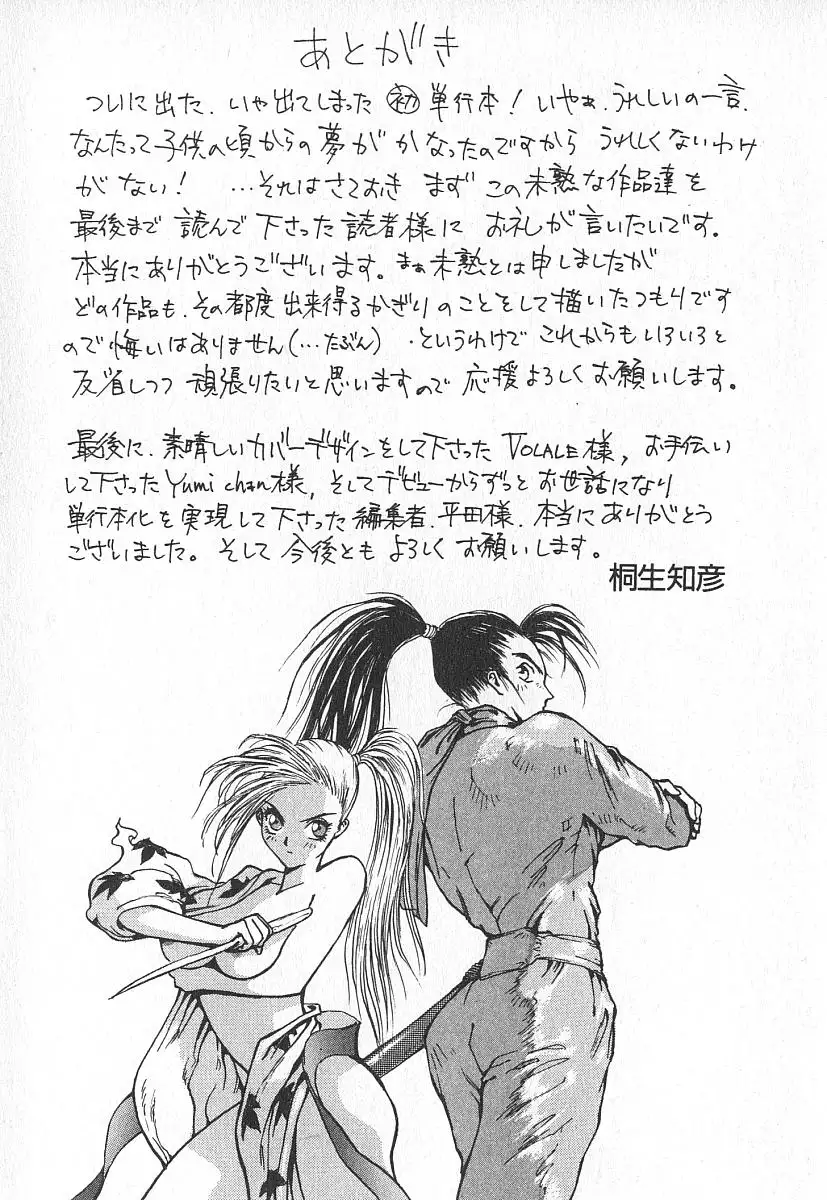 あとがき
ついに出た、いや出てしまった㊙初単行本！いやぁ、うれしいの一言、
なんたって子供の頃からの夢がかなったのですから うれしくないわけ
がない！ …それはさておき まず この未熟な作品達を
最後まで 読んで下さった読者様に お礼が言いたいです。
本当にありがとうございます。まぁ未熟とは申しましたが
どの作品も、その都度出来得るかぎりのことをして描いたつもりです
ので悔いはありません(…たぶん) ・というわけで これからもいろいろと
反省しつつ 頑張りたいと思いますので 応援よろしくお願いします。
最後に、素晴しいカバーデザインをして下さった VOLALE様, お手伝い
して下さったYumi chan様, そしてデビューからずっとお世話になり
単行本化を実現して下さった編集者、平田様、本当にありがとう
ございました。そして 今後とも よろしくお願いします。
桐生知彦